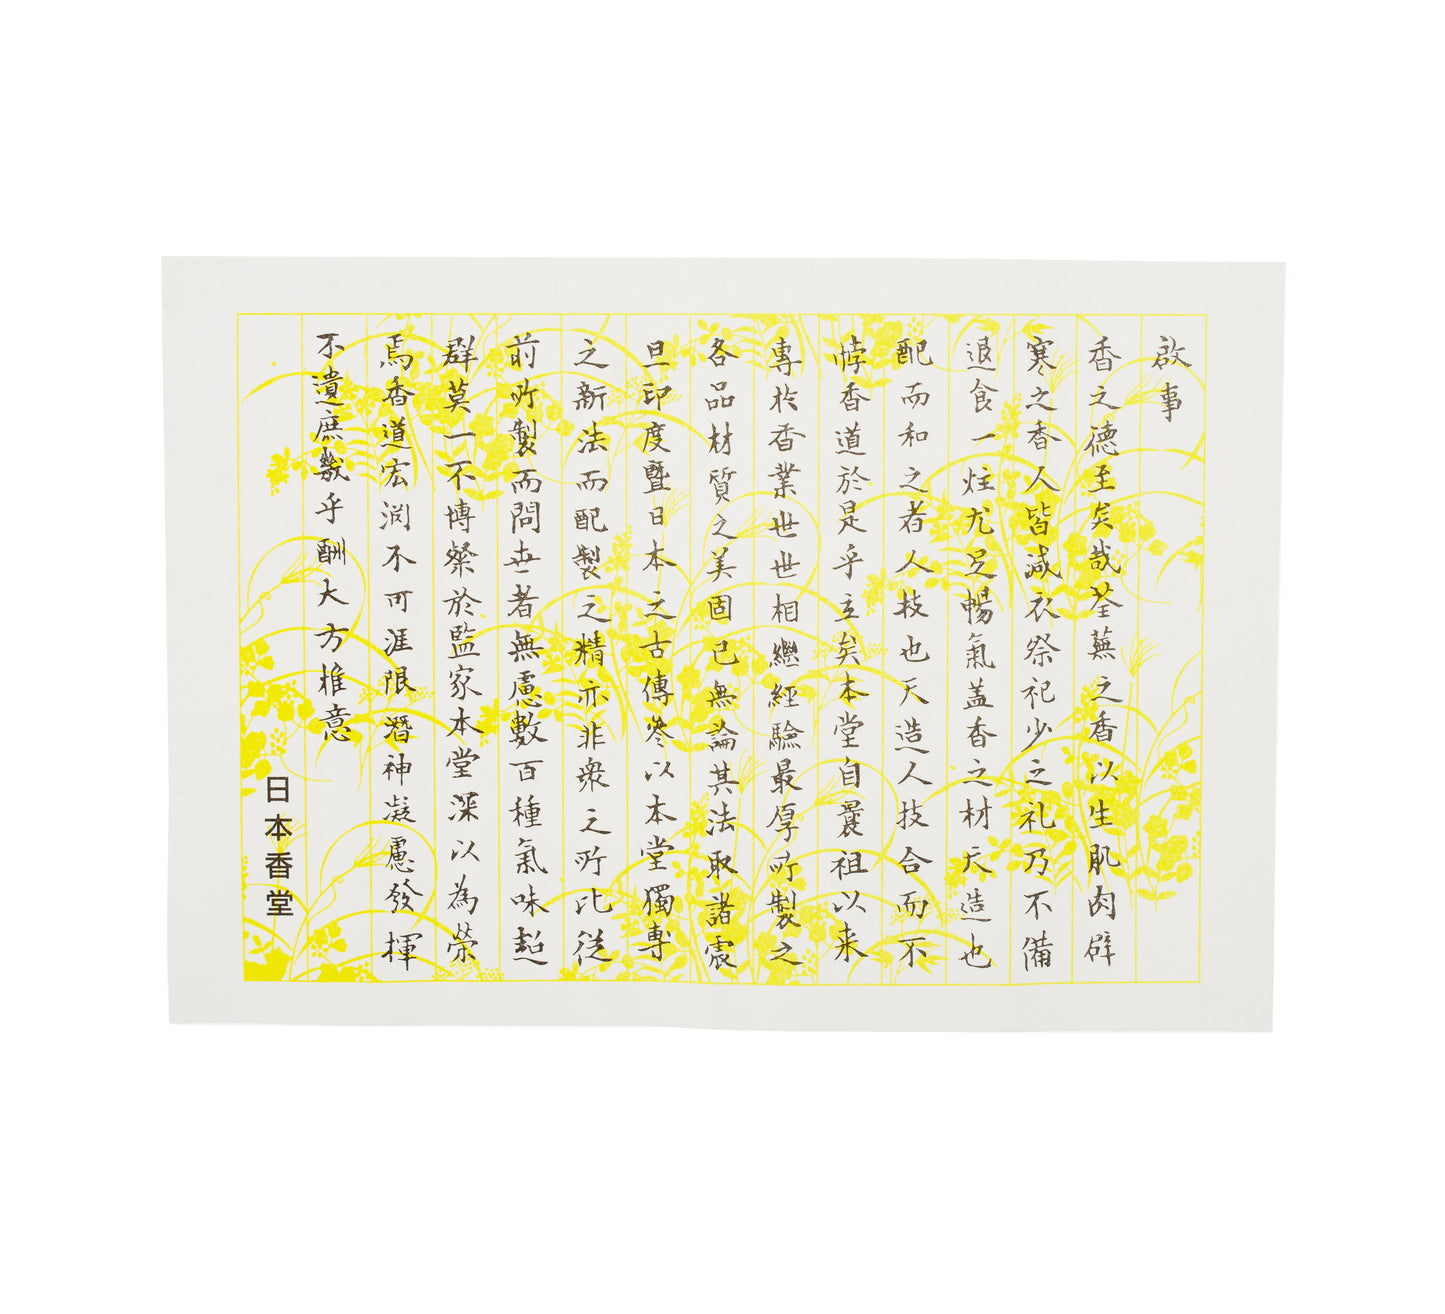 啟事
香之德至矣哉荃蕪之香以生肌肉辟
寒之香人皆減衣祭祀少之礼乃不備
退食一炷尤足暢氣蓋香之材天造也
配而和之者人技也天造人技合而不
悖香道於是乎立矣本堂自曩祖以来
專於香業世世相繼經驗最厚所製之
各品材質之美固已無論其法取諸震
旦印度暨日本之古傳參以本堂獨專
之新法而配製之精亦非衆之所比従
前所製而問世者無慮數百種氣味超
群莫一不博粲於監家本堂深以為榮
焉香道宏渕不可涯限潛神凝慮發揮
不遺庶幾乎酬大方惟意
日本香堂